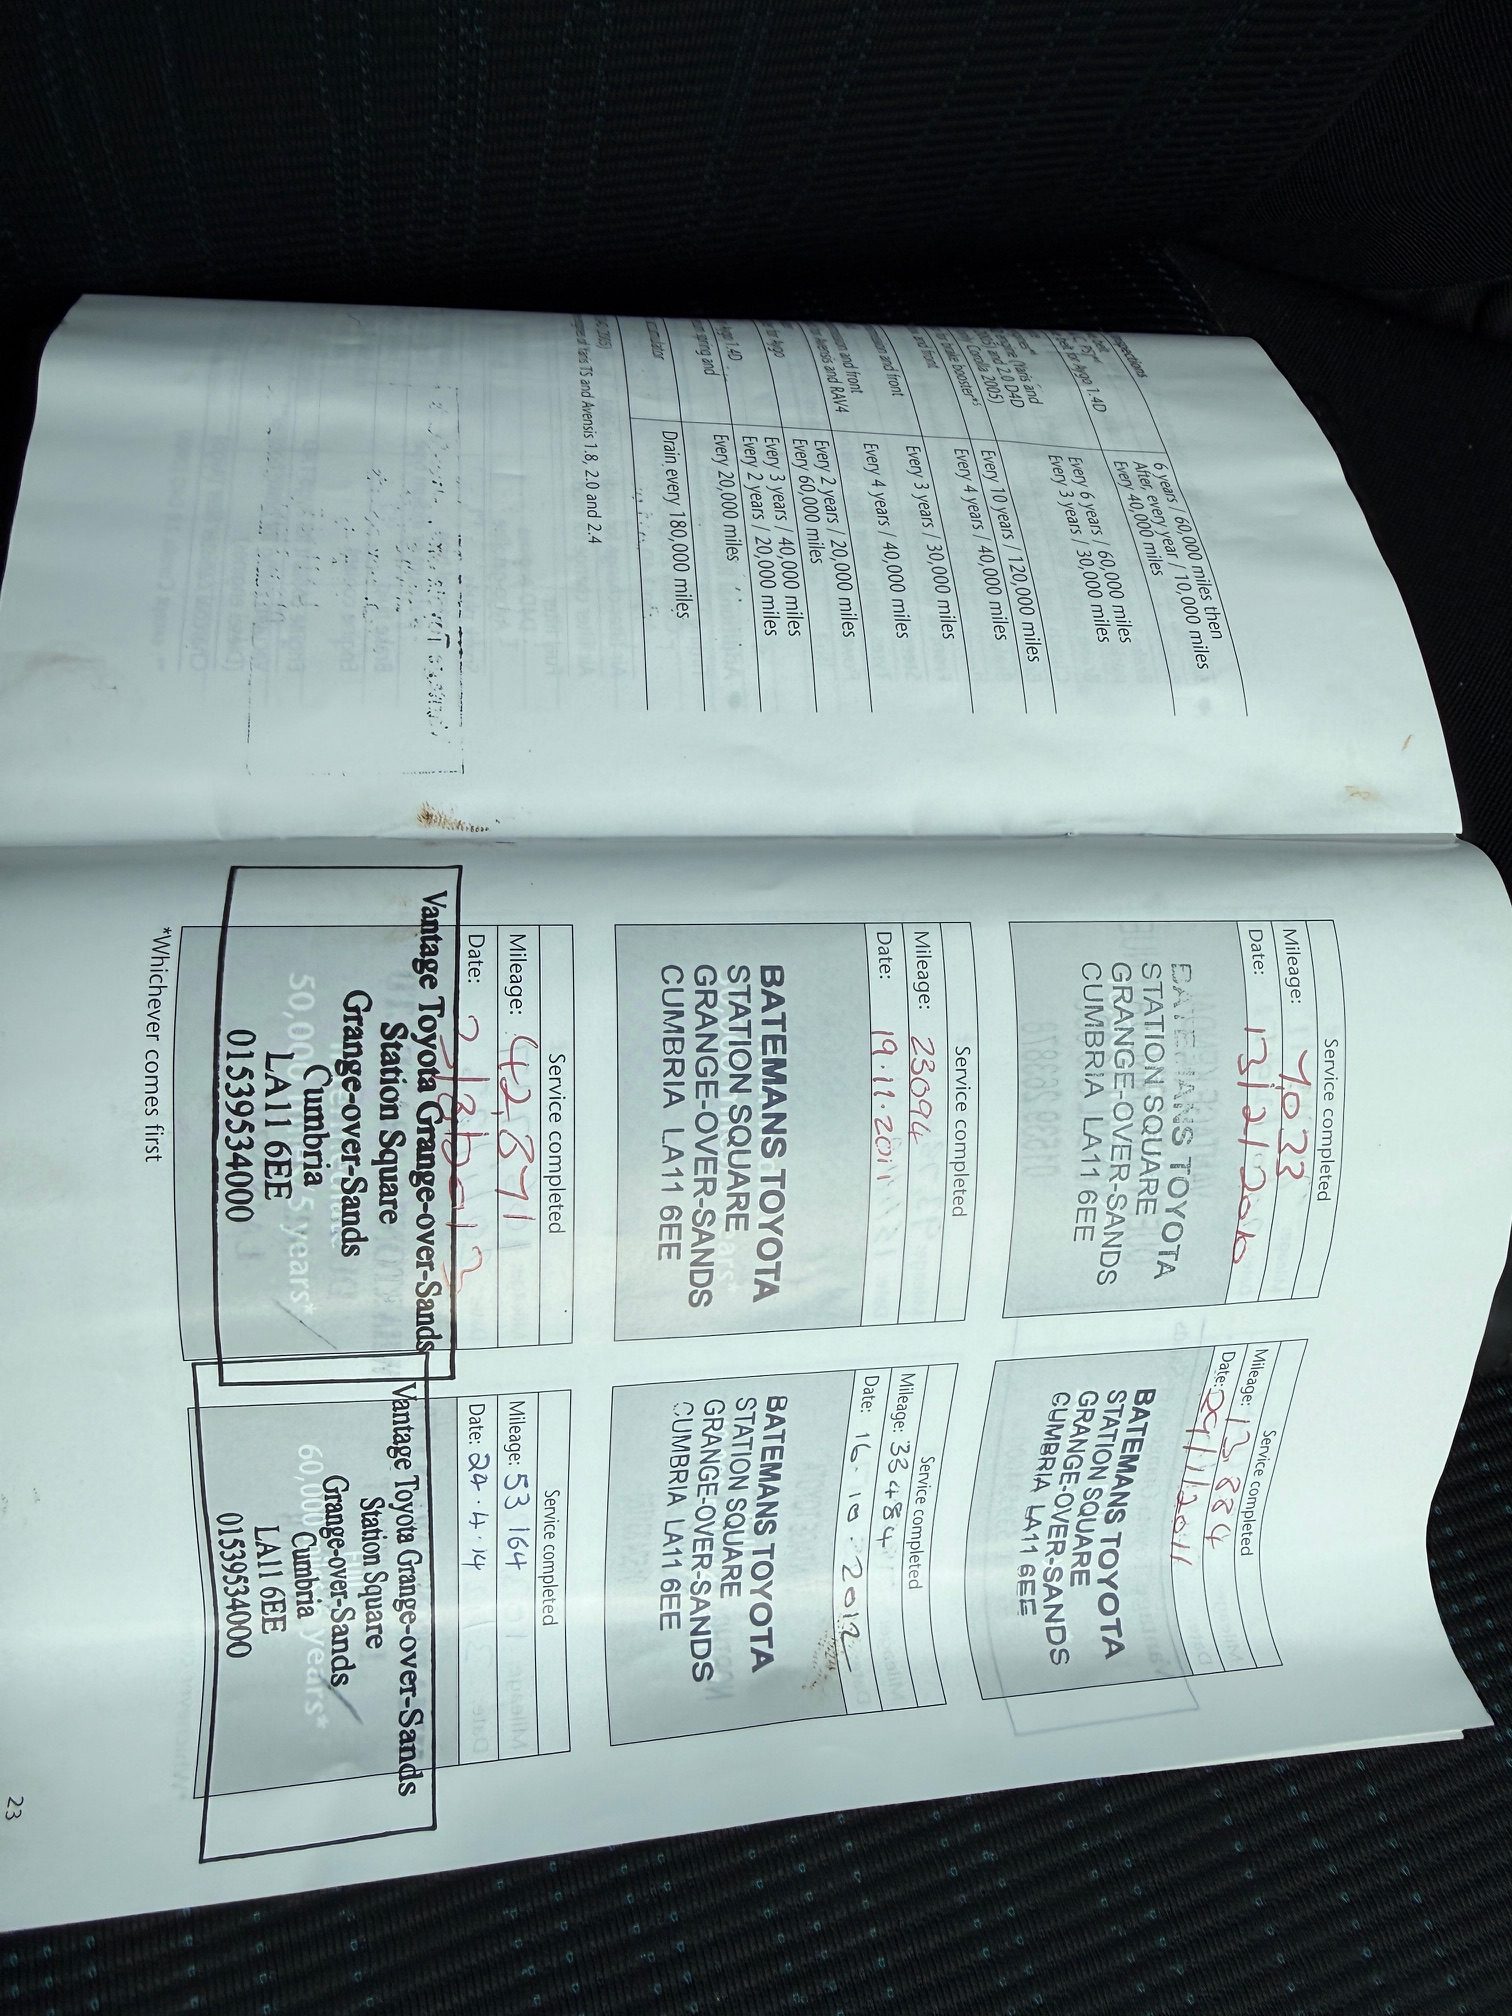 Inspections
6 years / 60,000 miles then
After, every year / 10,000 miles
Every 40,000 miles
for Aygo 1.4D
Every 6 years / 60,000 miles
Every 3 years / 30,000 miles
engine (Yaris and
and 2.0 D4D
Corolla 2005)
Every 10 years / 120,000 miles
for brake booster
Every 4 years / 40,000 miles
and front
Every 3 years / 30,000 miles
and front
Every 4 years / 40,000 miles
and front
Avensis and RAV4
Every 2 years / 20,000 miles
Every 60,000 miles
for Aygo
Every 3 years / 40,000 miles
Aygo 1.4D
Every 2 years / 20,000 miles
spring and
Every 20,000 miles
Drain every 180,000 miles
2005)
of Yaris TS and Avensis 1.8, 2.0 and 2.4
Service completed
Mileage: 7,033
Date: 13/2/2010
BATEMANS TOYOTA
STATION SQUARE
GRANGE-OVER-SANDS
CUMBRIA LA11 6EE
Service completed
Mileage: 13,884
Date: /1/2011
BATEMANS TOYOTA
STATION SQUARE
GRANGE-OVER-SANDS
CUMBRIA LA11 6EE
Service completed
Mileage: 23094
Date: 19.11.2011
BATEMANS TOYOTA
STATION SQUARE
GRANGE-OVER-SANDS
CUMBRIA LA11 6EE
Service completed
Mileage: 33484
Date: 16.10.2012
BATEMANS TOYOTA
STATION SQUARE
GRANGE-OVER-SANDS
CUMBRIA LA11 6EE
Service completed
Mileage: 42,871
Date:
Vantage Toyota Grange-over-Sands
Station Square
Grange-over-Sands
Cumbria
LA11 6EE
01539534000
50,000 5 years*
Service completed
Mileage: 53164
Date: 24.4.14
Vantage Toyota Grange-over-Sands
Station Square
Grange-over-Sands
Cumbria
LA11 6EE
01539534000
60,000 years*
*Whichever comes first
23